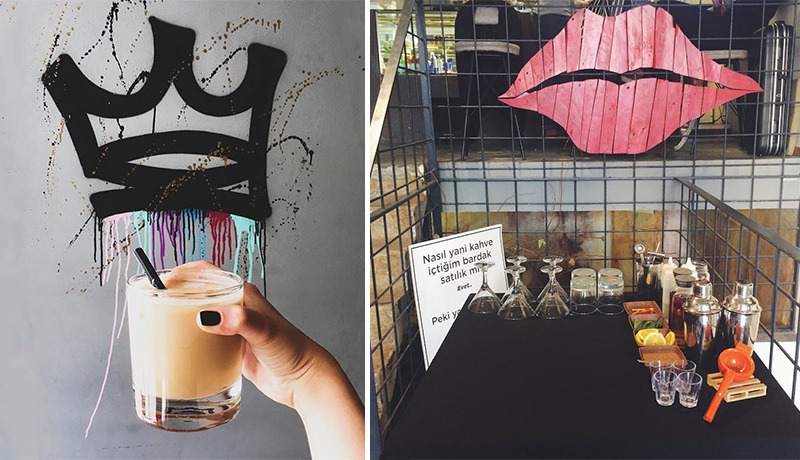 Nasıl yani kahve
içtiğim bardak
satılık
Evet..
Peki